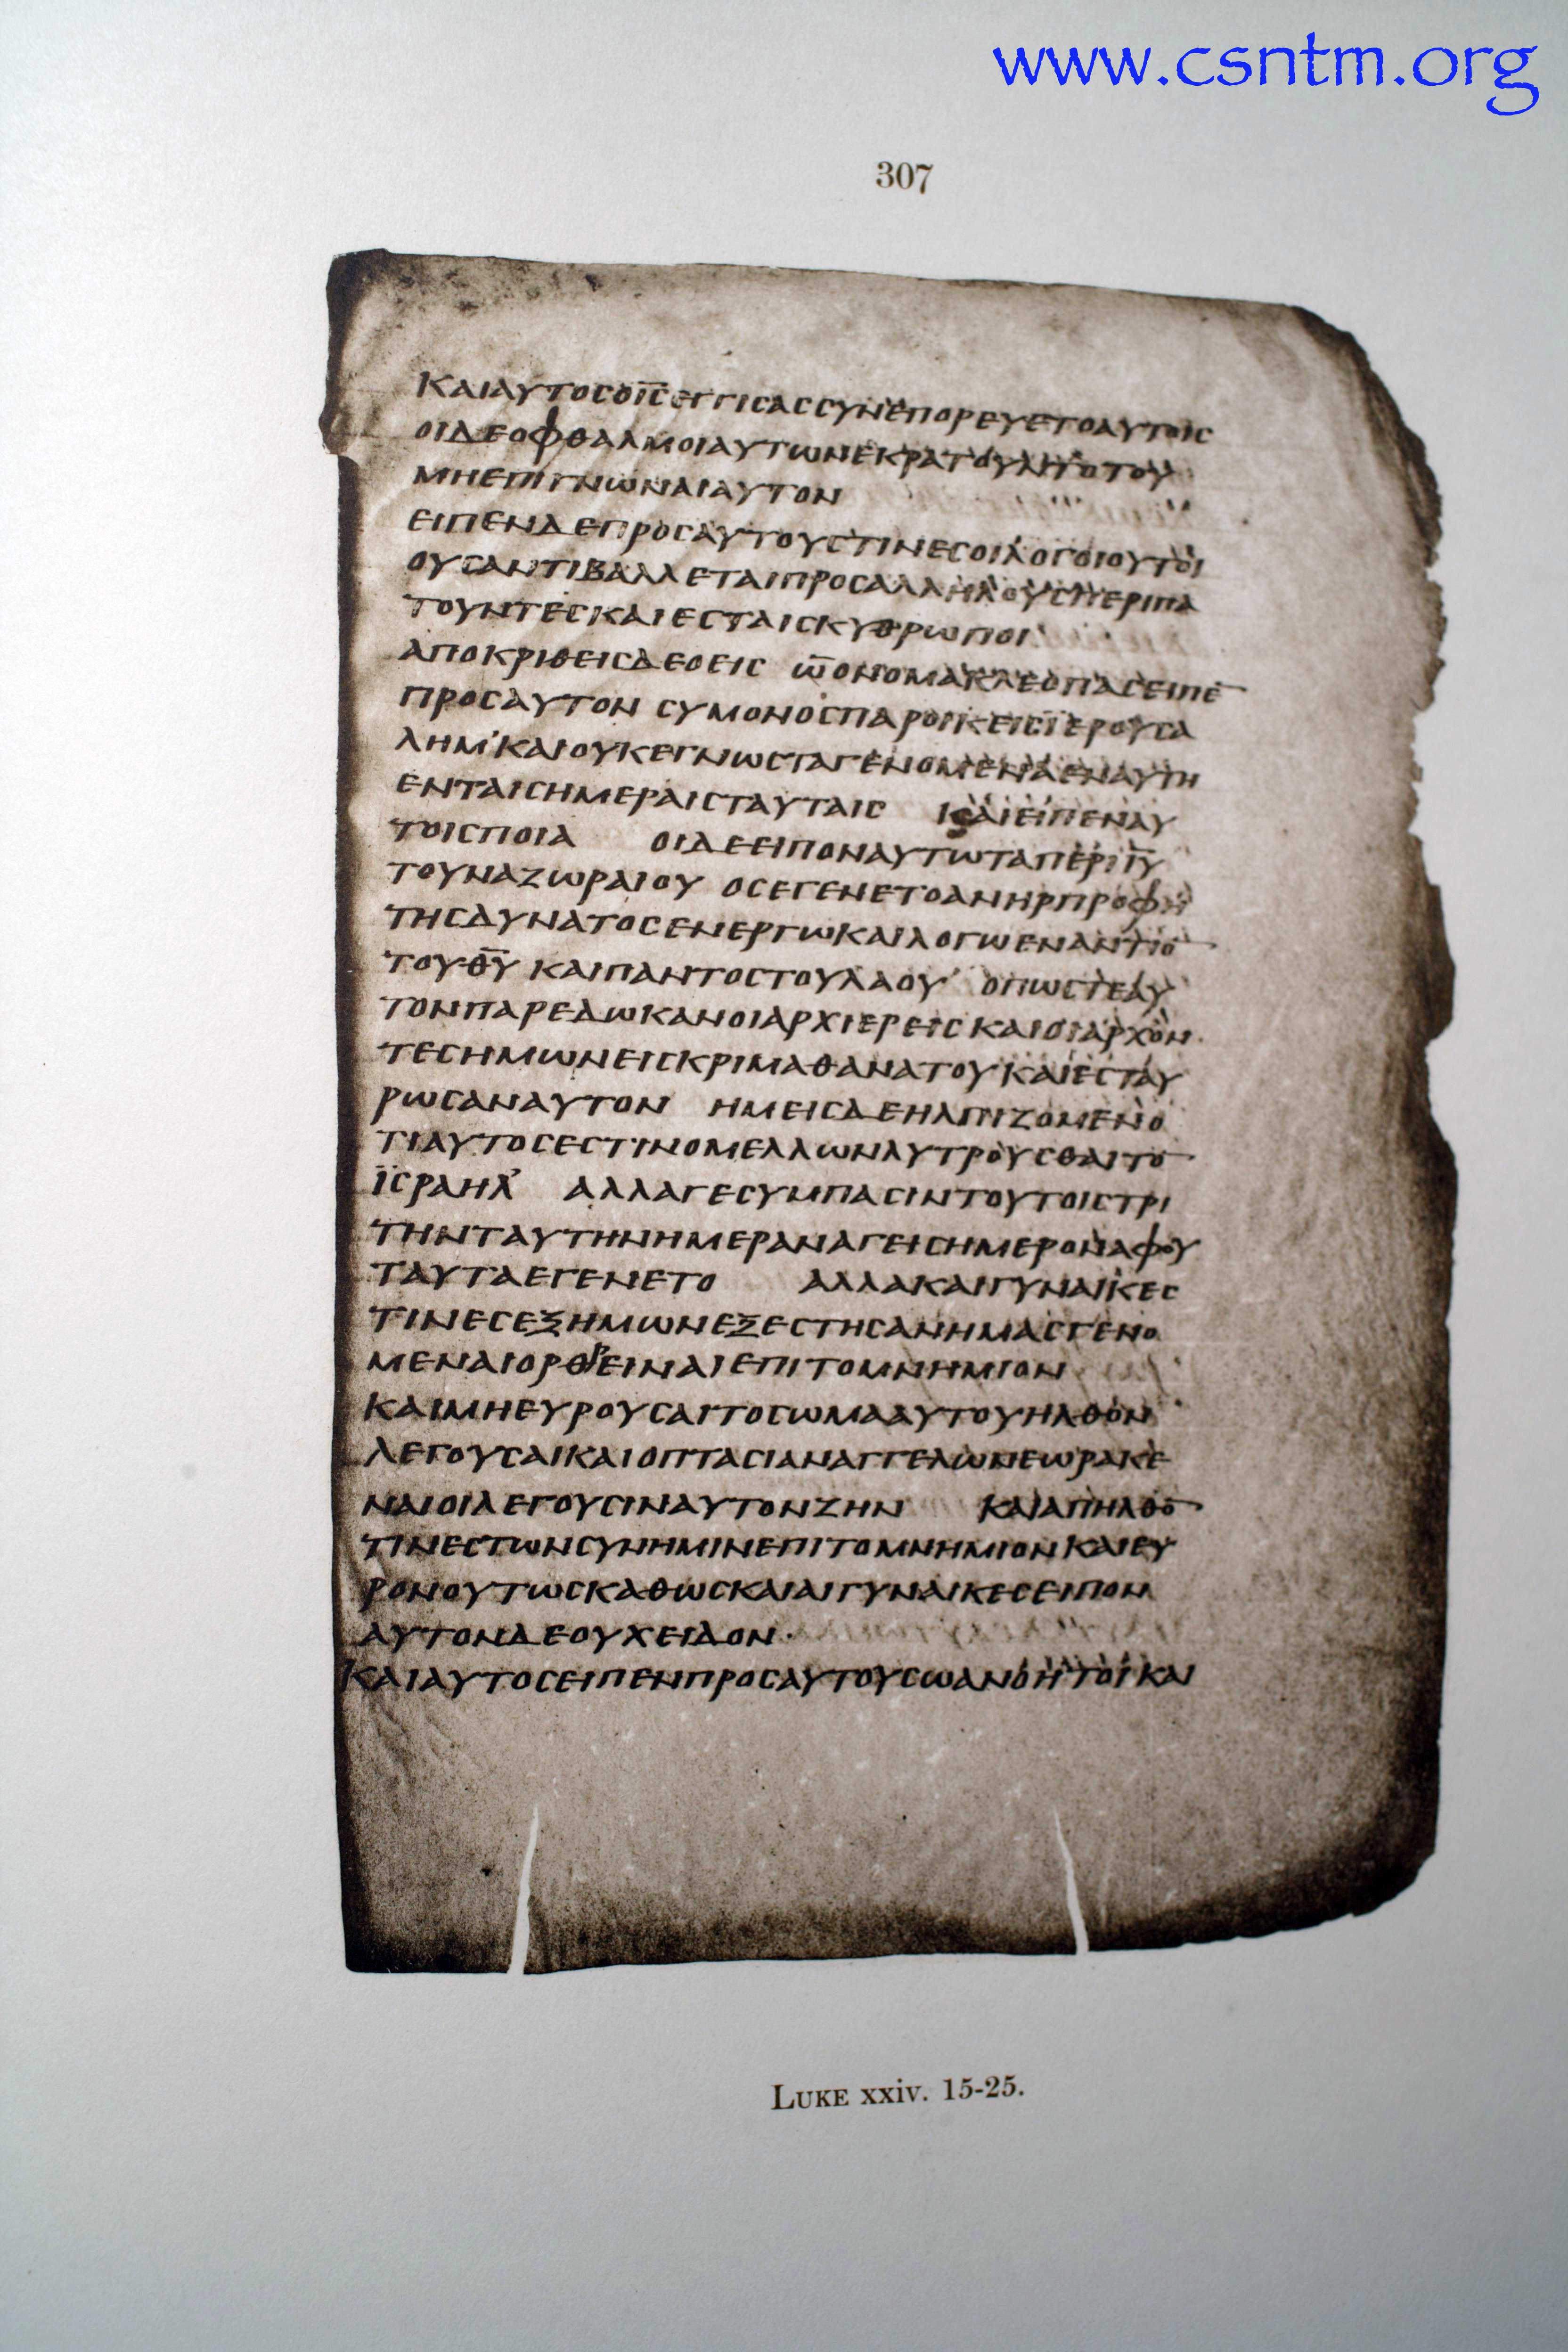 www.csntm.org
307
ΚΑΙΑΥΤΟCΟΙ̅C̅ΕΓΓΙCΑCCΥΝΕΠΟΡΕΥΕΤΟΑΥΤΟΙC
ΟΙΔΕΟΦΘΑΛΜΟΙΑΥΤΩΝΕΚΡΑΤΟΥΝΤΟΤΟΥ
ΜΗΕΠΙΓΝΩΝΑΙΑΥΤΟΝ
ΕΙΠΕΝΔΕΠΡΟCΑΥΤΟΥCΤΙΝΕCΟΙΛΟΓΟΙΟΥΤΟΙ
ΟΥCΑΝΤΙΒΑΛΛΕΤΑΙΠΡΟCΑΛΛΗΛΟΥCΠΕΡΙΠΑ
ΤΟΥΝΤΕCΚΑΙΕCΤΑΙCΚΥΘΡΩΠΟΙ
ΑΠΟΚΡΙΘΕΙCΔΕΟΕΙC Ω̅ΟΝΟΜΑΚΛΕΟΠΑCΕΙΠΕ̅
ΠΡΟCΑΥΤΟΝ CΥΜΟΝΟCΠΑΡΟΙΚΕΙCΪΕΡΟΥCΑ
ΛΗΜ'ΚΑΙΟΥΚΕΓΝΩCΤΑΓΕΝΟΜΕΝΑΕΝΑΥΤΗ
ΕΝΤΑΙCΗΜΕΡΑΙCΤΑΥΤΑΙC ΚΑΙΕΙΠΕΝΑΥ
ΤΟΙCΠΟΙΑ ΟΙΔΕΕΙΠΟΝΑΥΤΩΤΑΠΕΡΙΙ̅Υ̅
ΤΟΥΝΑΖΩΡΑΙΟΥ ΟCΕΓΕΝΕΤΟΑΝΗΡΠΡΟΦΗ
ΤΗCΔΥΝΑΤΟCΕΝΕΡΓΩΚΑΙΛΟΓΩΕΝΑΝΤΙΟ̅
ΤΟΥΘ̅Υ̅ ΚΑΙΠΑΝΤΟCΤΟΥΛΑΟΥ' ΟΠΩCΤΕΑΥ
ΤΟΝΠΑΡΕΔΩΚΑΝΟΙΑΡΧΙΕΡΕΙCΚΑΙΟΙΑΡΧΟΝ
ΤΕCΗΜΩΝΕΙCΚΡΙΜΑΘΑΝΑΤΟΥΚΑΙΕCΤΑΥ
ΡΩCΑΝΑΥΤΟΝ ΗΜΕΙCΔΕΗΛΠΙΖΟΜΕΝΟ
ΤΙΑΥΤΟCΕCΤΙΝΟΜΕΛΛΩΝΛΥΤΡΟΥCΘΑΙΤΟ̅
ΪCΡΑΗΛ' ΑΛΛΑΓΕCΥΜΠΑCΙΝΤΟΥΤΟΙCΤΡΙ
ΤΗΝΤΑΥΤΗΝΗΜΕΡΑΝΑΓΕΙCΗΜΕΡΟΝΑΦΟΥ
ΤΑΥΤΑΕΓΕΝΕΤΟ ΑΛΛΑΚΑΙΓΥΝΑΙΚΕC
ΤΙΝΕCΕΞΗΜΩΝΕΞΕCΤΗCΑΝΗΜΑCΓΕΝΟ
ΜΕΝΑΙΟΡΘΡΕΙΝΑΙΕΠΙΤΟΜΝΗΜΙΟΝ
ΚΑΙΜΗΕΥΡΟΥCΑΙΤΟCΩΜΑΑΥΤΟΥΗΛΘΟΝ
ΛΕΓΟΥCΑΙΚΑΙΟΠΤΑCΙΑΝΑΓΓΕΛΩΝΕΩΡΑΚΕ
ΝΑΙΟΙΛΕΓΟΥCΙΝΑΥΤΟΝΖΗΝ ΚΑΙΑΠΗΛΘΟ̅
ΤΙΝΕCΤΩΝCΥΝΗΜΙΝΕΠΙΤΟΜΝΗΜΙΟΝΚΑΙΕΥ
ΡΟΝΟΥΤΩCΚΑΘΩCΚΑΙΑΙΓΥΝΑΙΚΕCΕΙΠΟΝ
ΑΥΤΟΝΔΕΟΥΧΕΙΔΟΝ·
ΚΑΙΑΥΤΟCΕΙΠΕΝΠΡΟCΑΥΤΟΥCΩΑΝΟΗΤΟΙΚΑΙ
LUKE xxiv. 15-25.